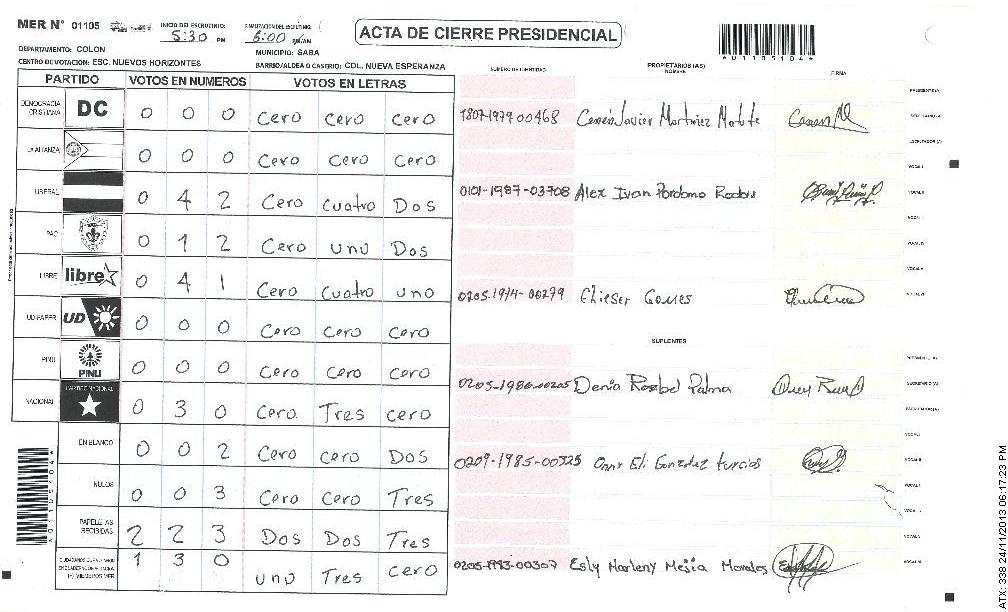 MER N° 01105
INICIO DEL ESCRUTINIO: 5:30 PM
FINALIZACION DEL ESCRUTINIO: 6:00 PM/AM
ACTA DE CIERRE PRESIDENCIAL
*01105104*
DEPARTAMENTO: COLON
MUNICIPIO: SABA
CENTRO DE VOTACION: ESC. NUEVOS HORIZONTES
BARRIO/ALDEA O CASERIO: COL. NUEVA ESPERANZA
NUMERO DE IDENTIDAD
PROPIETARIOS (AS)
NOMBRE
FIRMA
PARTIDO VOTOS EN NUMEROS VOTOS EN LETRAS
DEMOCRACIA CRISTIANA DC 0 0 0 Cero Cero Cero
LA ALIANZA 0 0 0 Cero Cero Cero
LIBERAL 0 4 2 Cero Cuatro Dos
PAC 0 1 2 Cero uno Dos
LIBRE libre 0 4 1 Cero Cuatro uno
UD-FAPER UD 0 0 0 Cero Cero Cero
PINU PINU 0 0 0 Cero Cero Cero
NACIONAL PARTIDO NACIONAL 0 3 0 Cero Tres cero
EN BLANCO 0 0 2 Cero Cero Dos
NULOS 0 0 3 Cero Cero Tres
PAPELETAS RECIBIDAS 2 2 3 Dos Dos Tres
1 3 0 uno Tres cero
(+) MIEMBROS MER
*01105104*
PRESIDENTE (A)
1807-1979-00468 Javier Martinez SECRETARIO (A)
ESCRUTADOR (A)
VOCAL I
0101-1987-03708 Alex Ivan Perdomo VOCAL II
VOCAL III
VOCAL IV
VOCAL V
0205-1974-00279 Elieser Gomes VOCAL VI
SUPLENTES
PRESIDENTE (A)
0205-1980-00205 Denia Rosibel Palma SECRETARIO (A)
ESCRUTADOR (A)
VOCAL I
0209-1985-00325 Omar Eli Gonzalez Turcios VOCAL II
VOCAL III
VOCAL IV
VOCAL V
0205-1993-00307 Esly Marleny Mejia Morales VOCAL VI
ATX: 338 24/11/2013 06:17:23 PM